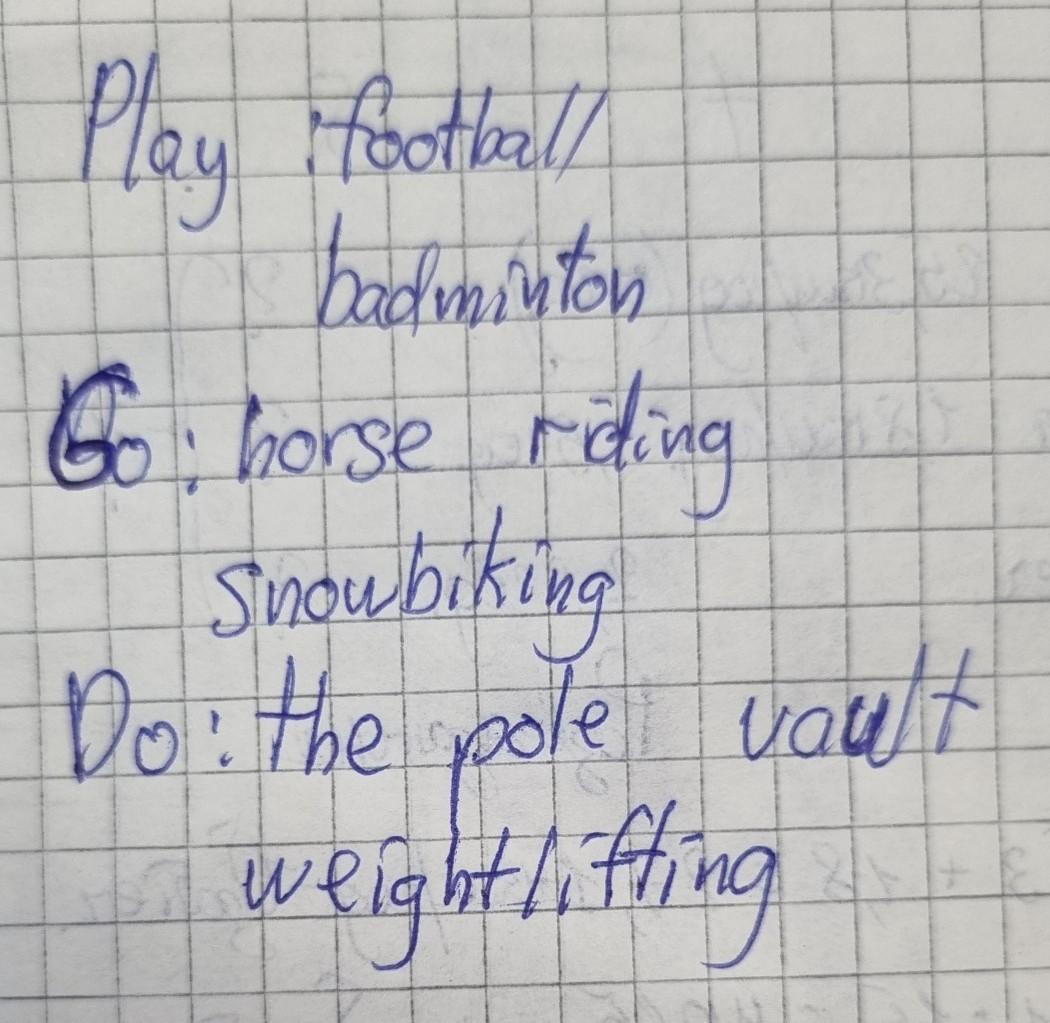 Play : football
badminton
Go : horse riding
snowbiking
Do : the pole vault
weightlifting